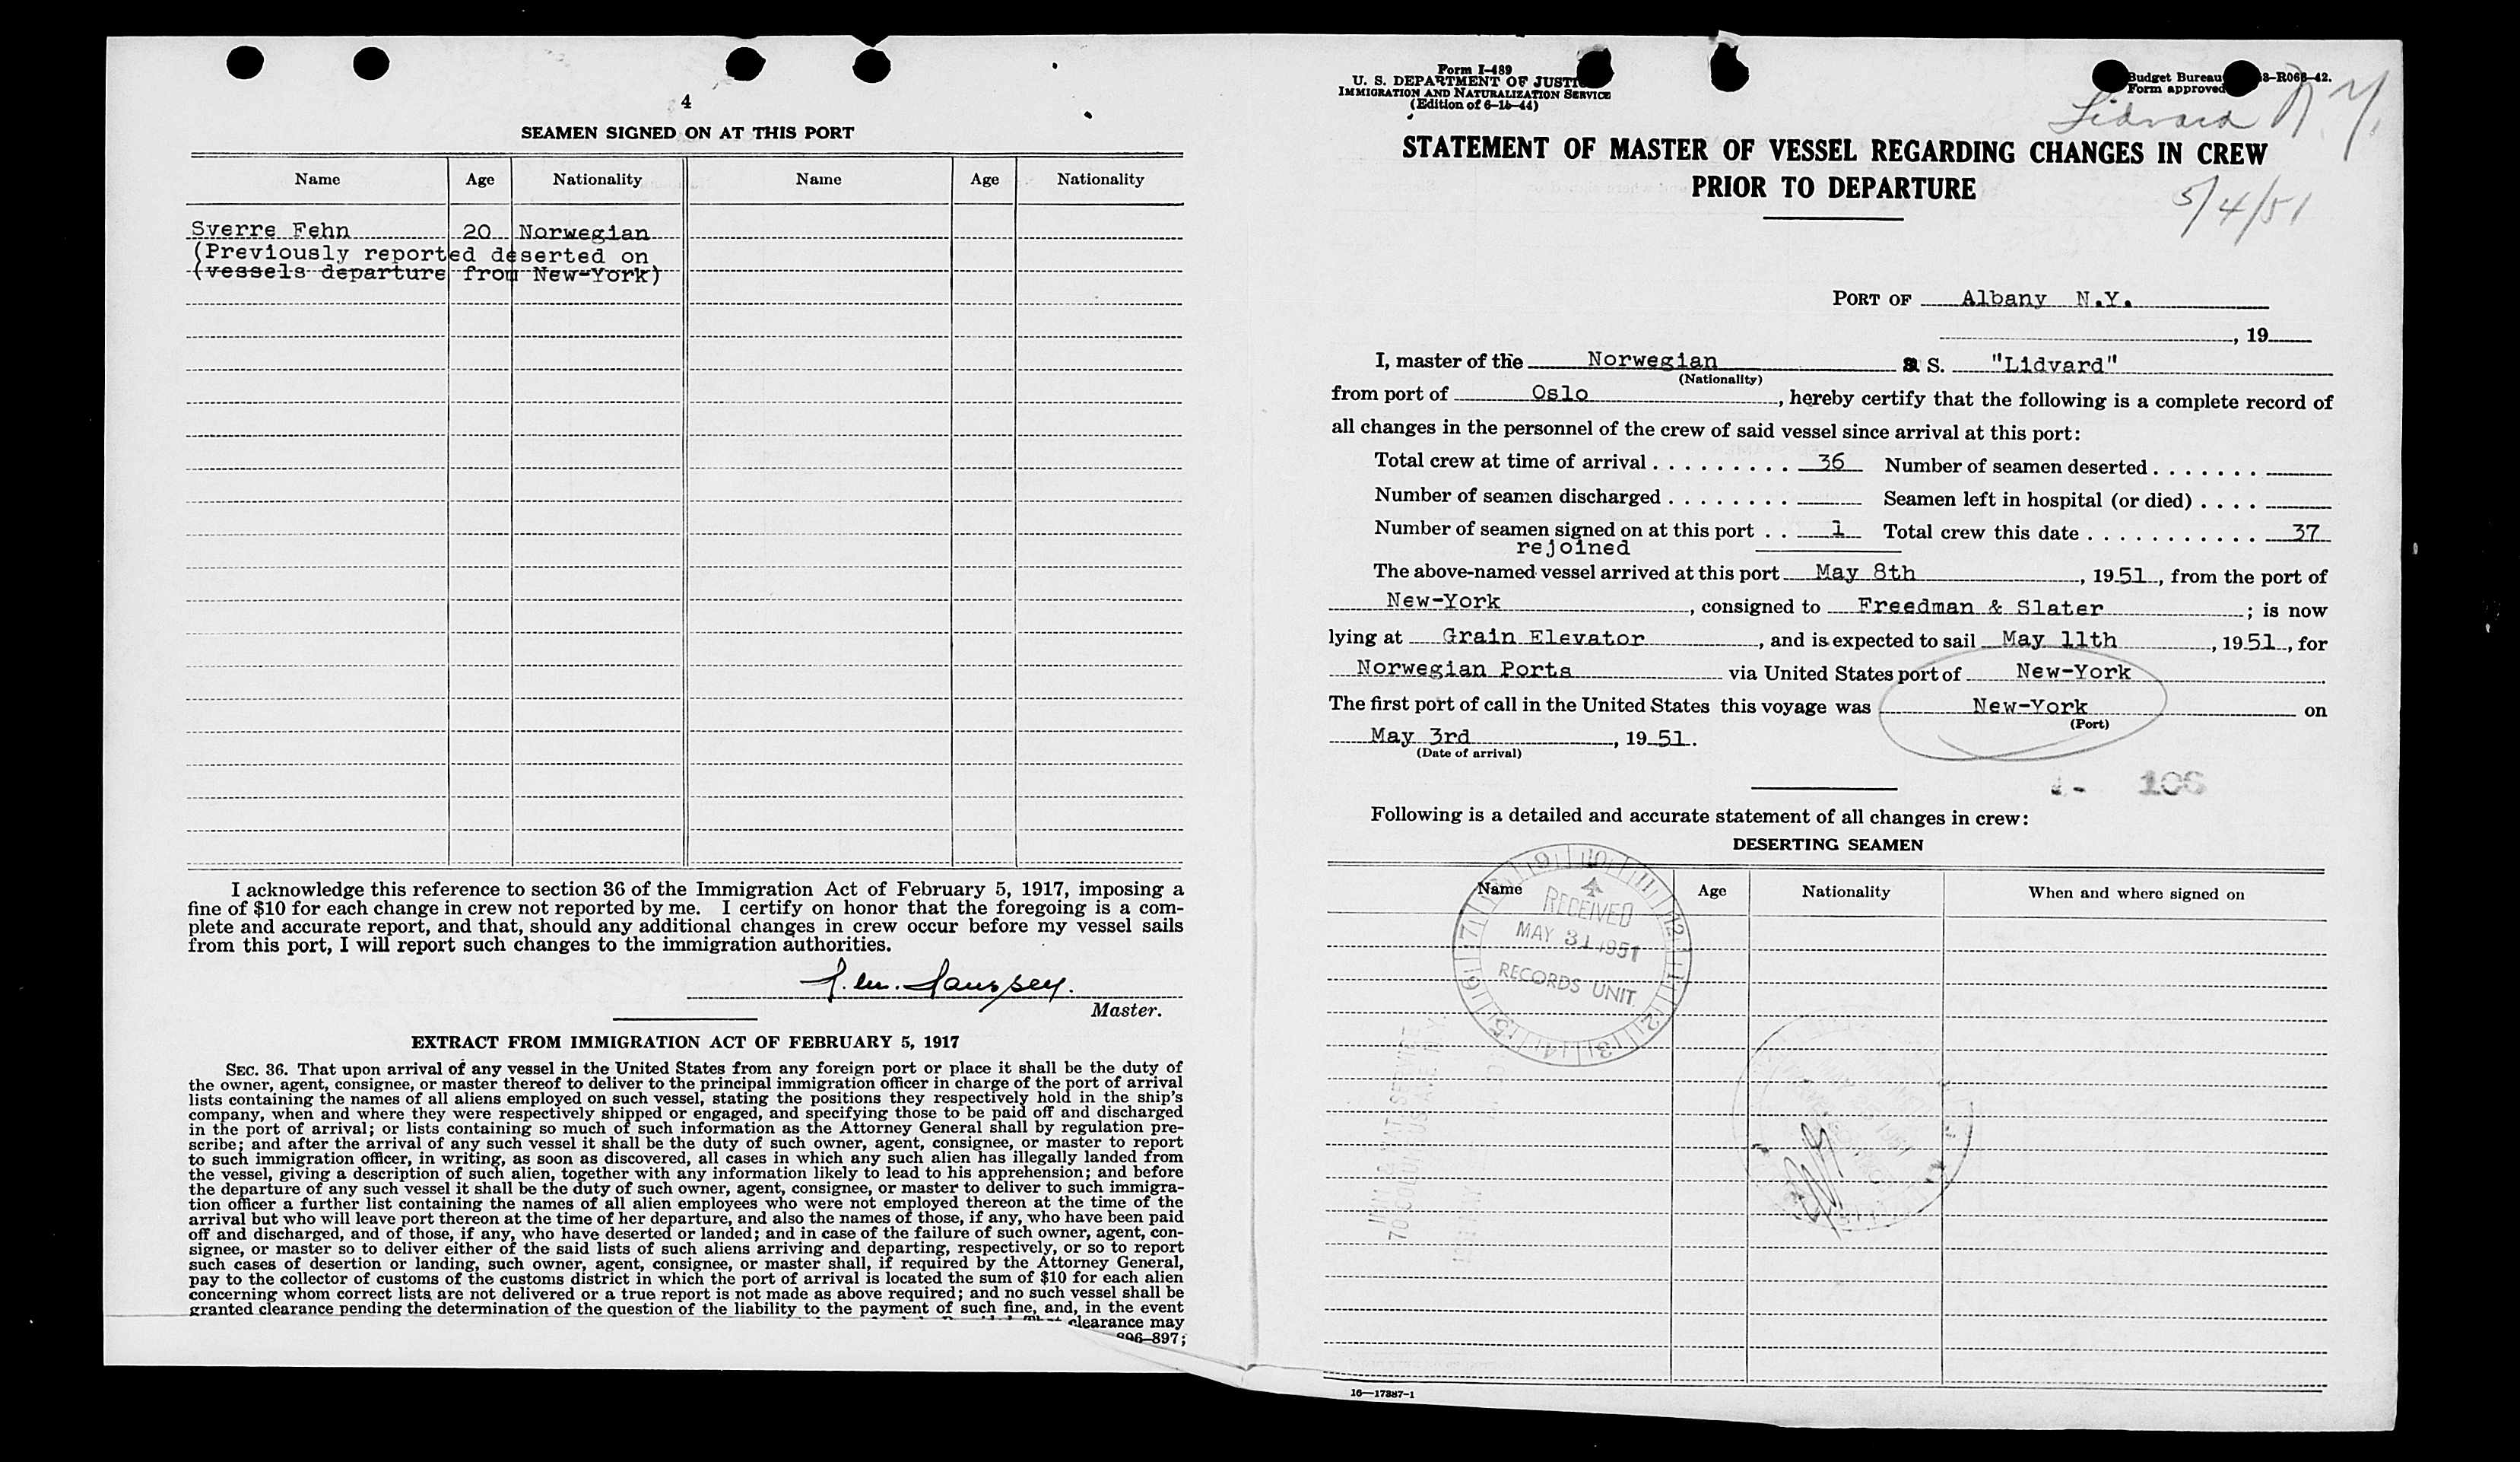 4
SEAMEN SIGNED ON AT THIS PORT
Name Age Nationality Name Age Nationality
Sverre Fehn 20 Norwegian
(Previously reported deserted on
(vessels departure from New-York)
I acknowledge this reference to section 36 of the Immigration Act of February 5, 1917, imposing a
fine of $10 for each change in crew not reported by me. I certify on honor that the foregoing is a com-
plete and accurate report, and that, should any additional changes in crew occur before my vessel sails
from this port, I will report such changes to the immigration authorities.
Master.
EXTRACT FROM IMMIGRATION ACT OF FEBRUARY 5, 1917
SEC. 36. That upon arrival of any vessel in the United States from any foreign port or place it shall be the duty of
the owner, agent, consignee, or master thereof to deliver to the principal immigration officer in charge of the port of arrival
lists containing the names of all aliens employed on such vessel, stating the positions they respectively hold in the ship's
company, when and where they were respectively shipped or engaged, and specifying those to be paid off and discharged
in the port of arrival; or lists containing so much of such information as the Attorney General shall by regulation pre-
scribe; and after the arrival of any such vessel it shall be the duty of such owner, agent, consignee, or master to report
to such immigration officer, in writing, as soon as discovered, all cases in which any such alien has illegally landed from
the vessel, giving a description of such alien, together with any information likely to lead to his apprehension; and before
the departure of any such vessel it shall be the duty of such owner, agent, consignee, or master to deliver to such immigra-
tion officer a further list containing the names of all alien employees who were not employed thereon at the time of the
arrival but who will leave port thereon at the time of her departure, and also the names of those, if any, who have been paid
off and discharged, and of those, if any, who have deserted or landed; and in case of the failure of such owner, agent, con-
signee, or master so to deliver either of the said lists of such aliens arriving and departing, respectively, or so to report
such cases of desertion or landing, such owner, agent, consignee, or master shall, if required by the Attorney General,
pay to the collector of customs of the customs district in which the port of arrival is located the sum of $10 for each alien
concerning whom correct lists are not delivered or a true report is not made as above required; and no such vessel shall be
granted clearance pending the determination of the question of the liability to the payment of such fine, and, in the event
clearance may
896-897;
Form I-489
U. S. DEPARTMENT OF JUSTI
IMMIGRATION AND NATURALIZATION SERVICE
(Edition of 6-15-44)
Budget Bureau 3-R066-42.
Form approved
Lidvard N.Y.
STATEMENT OF MASTER OF VESSEL REGARDING CHANGES IN CREW
PRIOR TO DEPARTURE
5/4/51
PORT OF Albany N.Y.
, 19
I, master of the Norwegian S. "Lidvard"
(Nationality)
from port of Oslo, hereby certify that the following is a complete record of
all changes in the personnel of the crew of said vessel since arrival at this port:
Total crew at time of arrival . . . . . . . . . 36 Number of seamen deserted . . . . . . .
Number of seamen discharged . . . . . . . . Seamen left in hospital (or died) . . . .
Number of seamen signed on at this port . . 1 Total crew this date . . . . . . . . . . . 37
rejoined
The above-named vessel arrived at this port May 8th, 1951, from the port of
New-York, consigned to Freedman & Slater; is now
lying at Grain Elevator, and is expected to sail May 11th, 1951, for
Norwegian Ports via United States port of New-York
The first port of call in the United States this voyage was New-York on
(Port)
May 3rd, 1951.
(Date of arrival)
106
Following is a detailed and accurate statement of all changes in crew:
DESERTING SEAMEN
Name Age Nationality When and where signed on
RECEIVED
MAY 31 1951
RECORDS UNIT
16—17387-1